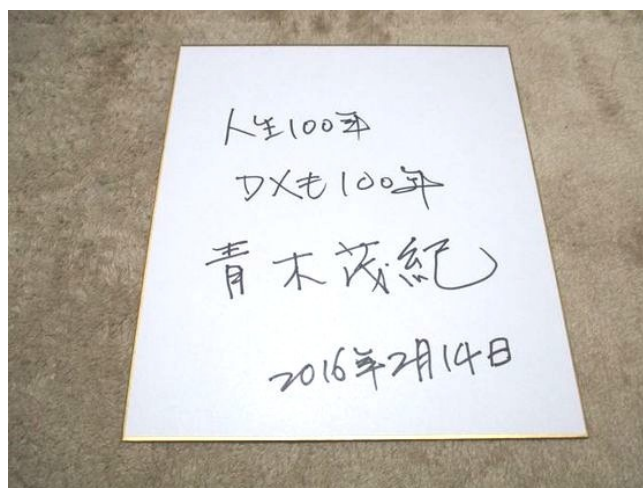 人生100年
DXも100年
青木茂紀
2016年2月14日